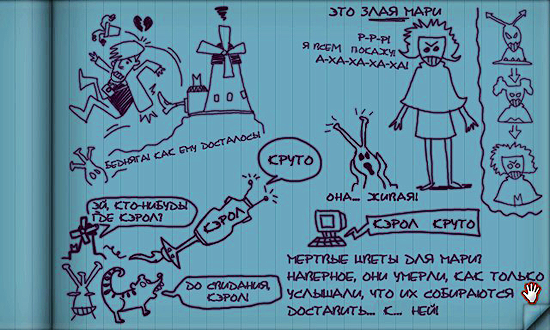 БЕДНЯГА! КАК ЕМУ ДОСТАЛОСЬ!
ЭЙ, КТО-НИБУДЬ!
ГДЕ КЭРОЛ?
КЭРОЛ
КРУТО
ДО СВИДАНИЯ,
КЭРОЛ!
ЭТО ЗЛАЯ МАРИ
Р-Р-Р!
Я ВСЕМ ПОКАЖУ!
А-ХА-ХА-ХА-ХА!
ОНА... ЖИВАЯ!
КЭРОЛ КРУТО
МЕРТВЫЕ ЦВЕТЫ ДЛЯ МАРИ?
НАВЕРНОЕ, ОНИ УМЕРЛИ, КАК ТОЛЬКО
УСЛЫШАЛИ, ЧТО ИХ СОБИРАЮТСЯ
ДОСТАВИТЬ... К... НЕЙ!
M